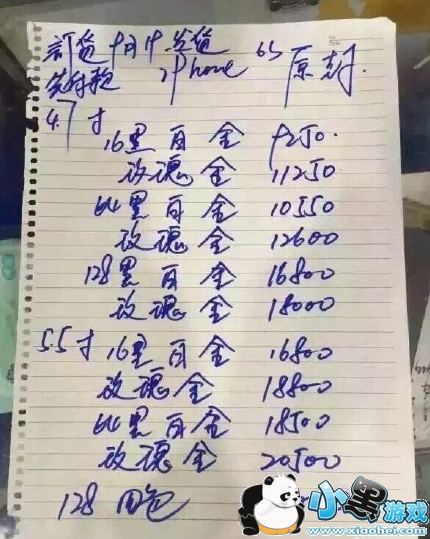 訂货 9月19发货 iPhone 6S 原封.
先付款
4.7寸
16黑白金 9250.
玫瑰金 11250
64黑白金 10550
玫瑰金 12600
128黑白金 16800
玫瑰金 18000
5.5寸 16黑白金 16800
玫瑰金 18800
64黑白金 18500
玫瑰金 20500
128 四色
小黑游戏
www.xiaohei.com